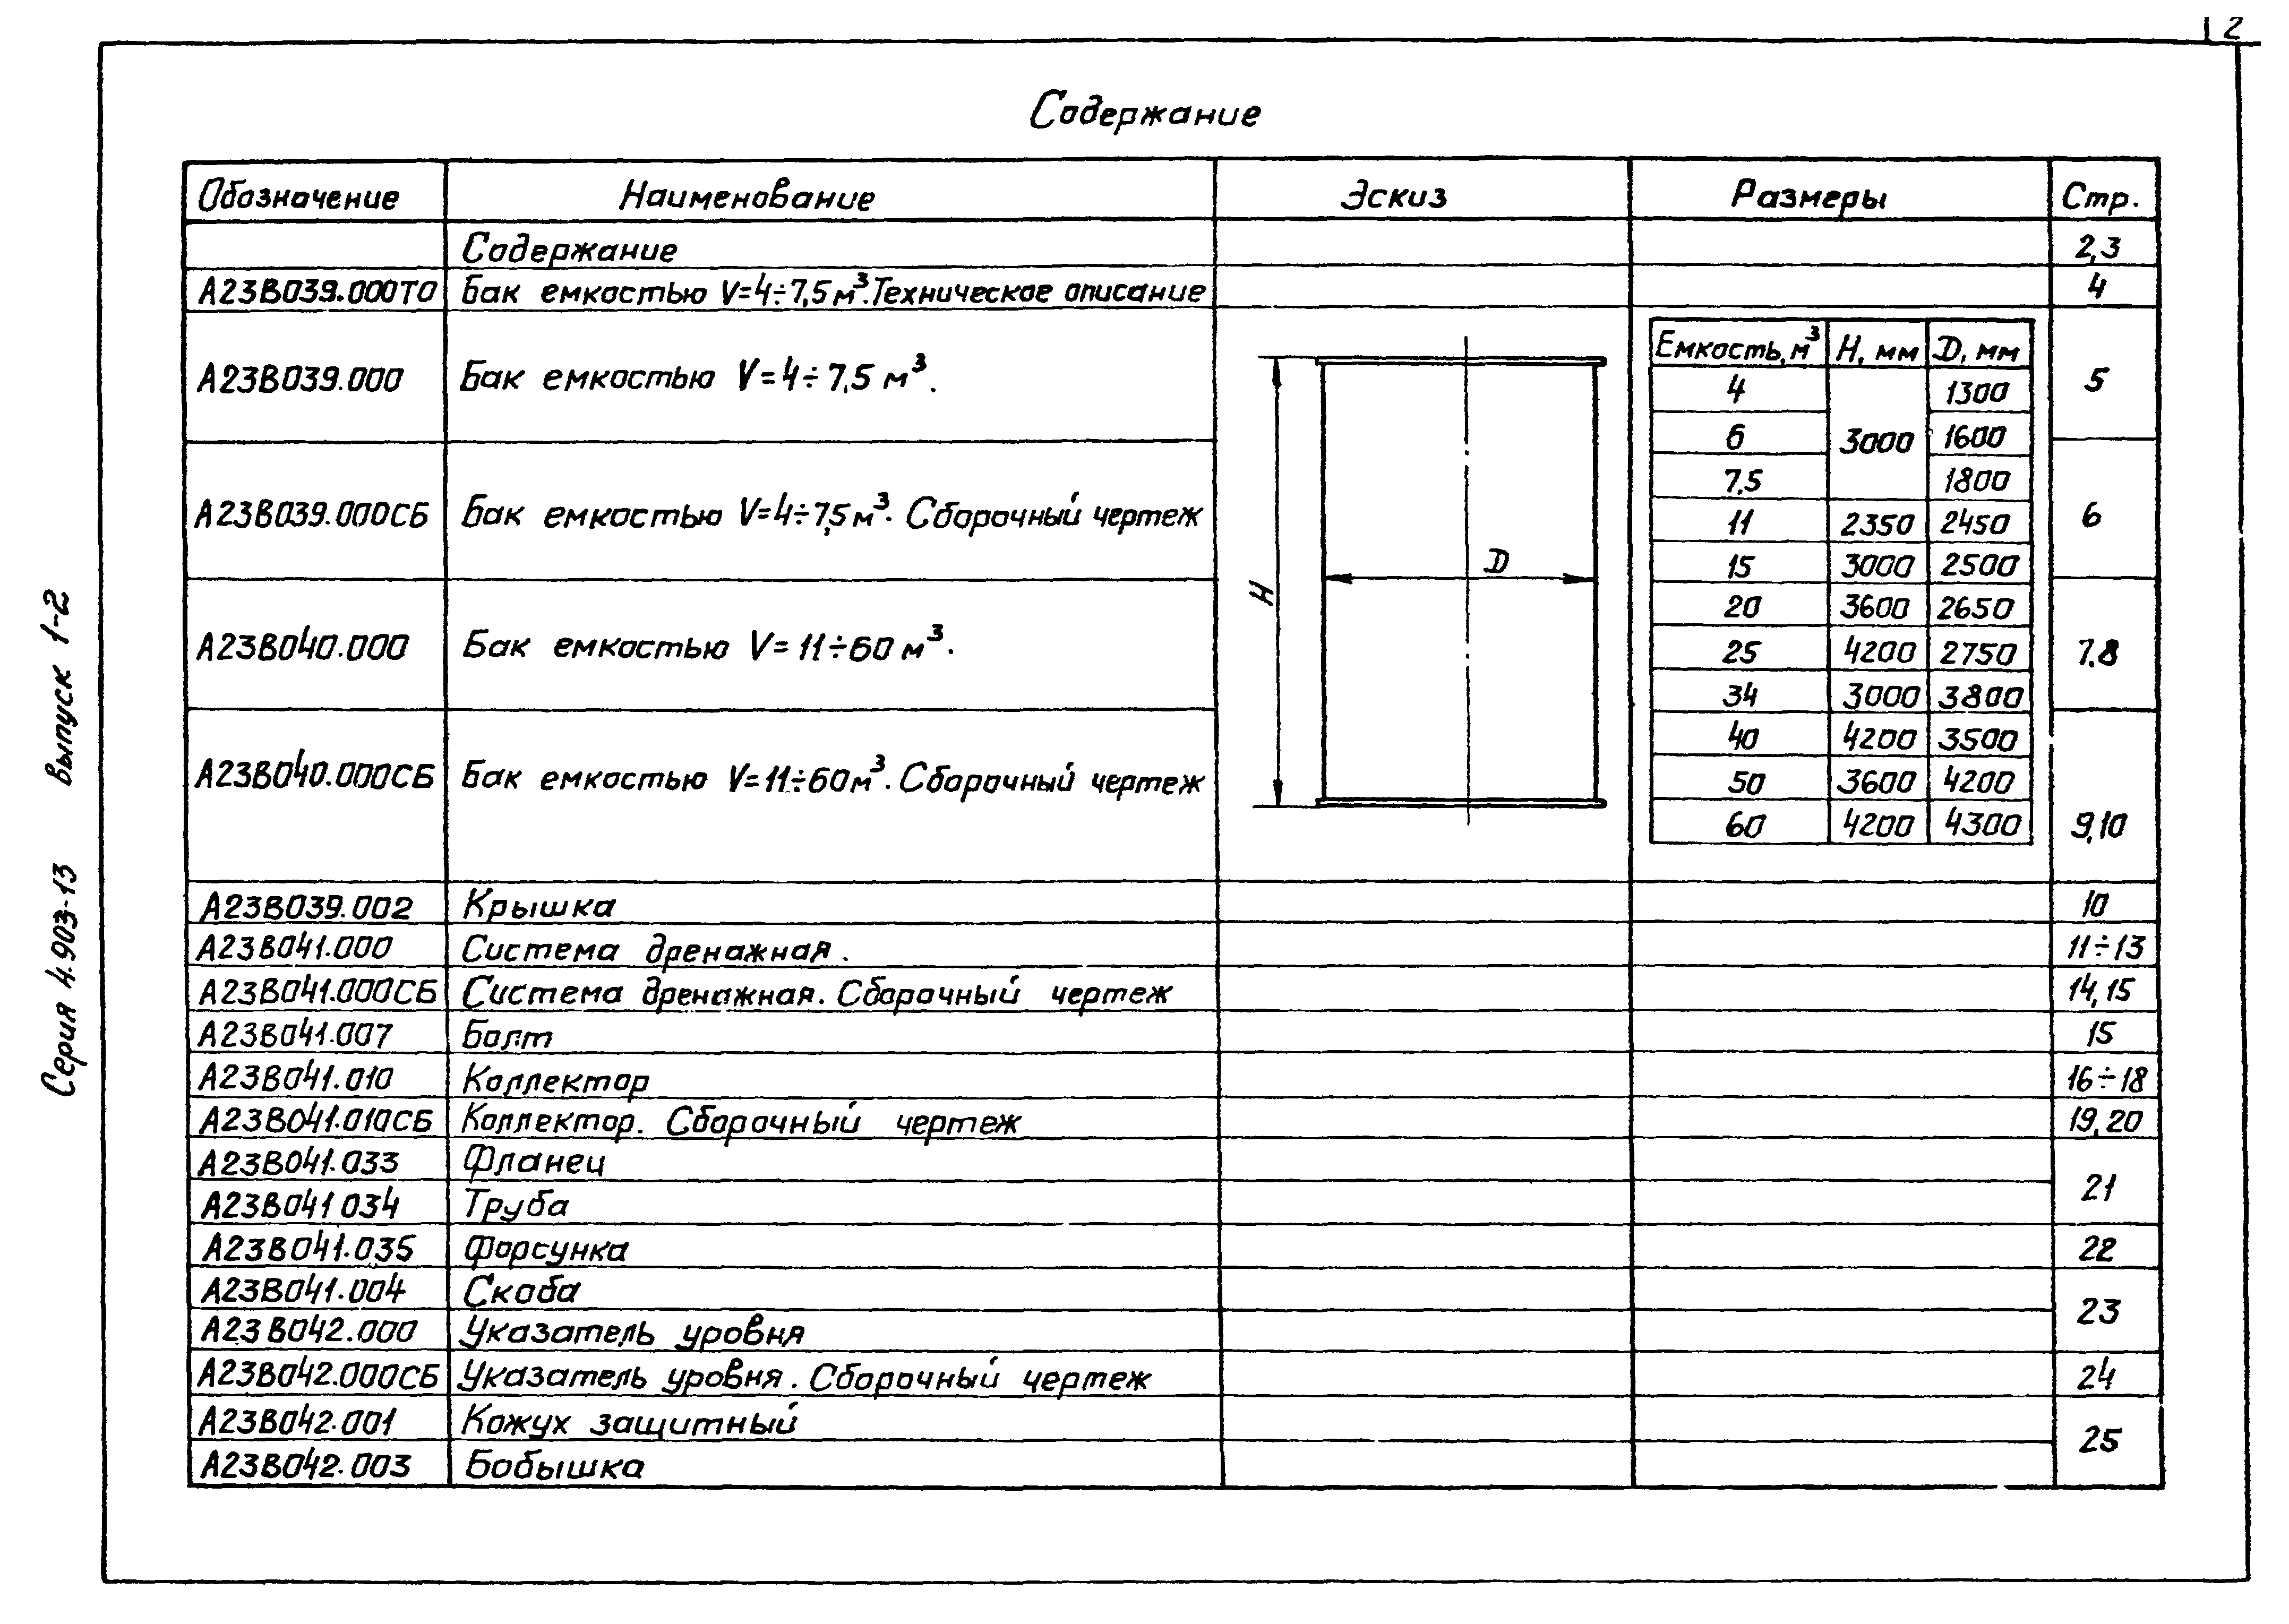 2
Содержание
Обозначение Наименование Эскиз Размеры Стр.
Содержание 2,3
А23В039.000ТО Бак емкостью V=4÷7,5 м³. Техническое описание 4
А23В039.000 Бак емкостью V=4÷7,5 м³. 5
А23В039.000СБ Бак емкостью V=4÷7,5 м³. Сборочный чертеж 6
А23В040.000 Бак емкостью V=11÷60 м³. 7,8
А23В040.000СБ Бак емкостью V=11÷60 м³. Сборочный чертеж 9,10
H
D
Емкость, м³ H, мм D, мм
4 3000 1300
6 1600
7,5 1800
11 2350 2450
15 3000 2500
20 3600 2650
25 4200 2750
34 3000 3800
40 4200 3500
50 3600 4200
60 4200 4300
А23В039.002 Крышка 10
А23В041.000 Система дренажная. 11÷13
А23В041.000СБ Система дренажная. Сборочный чертеж 14,15
А23В041.007 Болт 15
А23В041.010 Коллектор 16÷18
А23В041.010СБ Коллектор. Сборочный чертеж 19,20
А23В041.033 Фланец 21
А23В041 034 Труба
А23В041.035 Форсунка 22
А23В041.004 Скоба 23
А23В042.000 Указатель уровня
А23В042.000СБ Указатель уровня. Сборочный чертеж 24
А23В042.001 Кожух защитный 25
А23В042.003 Бобышка
Серия 4.903-13 Выпуск 1-2